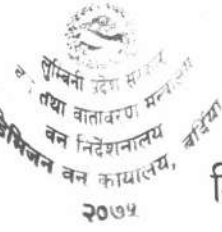 लुम्बिनी प्रदेश सरकार
तथा वातावरण मन्त्रालय
वन निर्देशनालय
डिभिजन वन कार्यालय, बर्दिया
२०७५